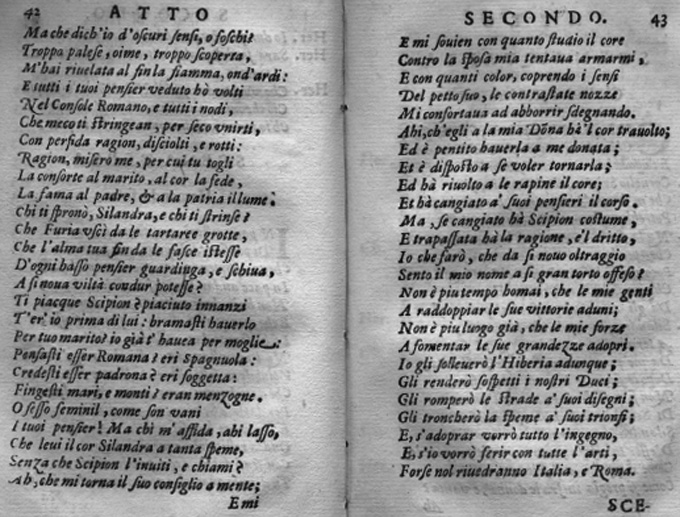 42 ATTO
Ma che dich'io d'oscuri sensi, o foschi?
Troppo palese, oime, troppo scoperta,
M'hai riuelata al fin la fiamma, ond'ardi:
E tutti i tuoi pensier veduto hò volti
Nel Console Romano, e tutti i nodi,
Che meco ti stringean, per seco vnirti,
Con perfida ragion, disciolti, e rotti:
Ragion, misero me, per cui tu togli
La consorte al marito, al cor la fede,
La fama al padre, & a la patria il lume.
Chi ti spronò, Silandra, e chi ti strinse?
Che Furia vscì da le tartaree grotte,
Che l'alma tua fin da le fasce istesse
D'ogni basso pensier guardinga, e schiua,
A sì noua viltà condur potesse?
Ti piacque Scipion? piaciuto innanzi
T'er' io prima di lui: bramasti hauerlo
Per tuo marito? io già t'hauea per moglie:
Pensasti esser Romana? eri Spagnuola:
Credesti esser padrona? eri soggetta:
Fingesti mari, e monti? eran menzogne.
O sesso feminil, come son vani
I tuoi pensier! Ma chi m'affida, ahi lasso,
Che leui il cor Silandra a tanta speme,
Senza che Scipion l'inuiti, e chiami?
Ah, che mi torna il suo consiglio a mente;
E mi
SECONDO. 43
E mi souien con quanto studio il core
Contro la sposa mia tentaua armarmi,
E con quanti color, coprendo i sensi
Del petto suo, le contrastate nozze
Mi confortaua ad abborrir sdegnando.
Ahi, ch'egli a la mia Dõna hà'l cor trauolto;
Ed è pentito hauerla a me donata;
Et è disposto a se voler tornarla;
Ed hà riuolto a le rapine il core;
Et hà cangiato a' suoi pensieri il corso.
Ma, se cangiato hà Scipion costume,
E trapassata hà la ragione, e'l dritto,
Io che farò, che da sì nouo oltraggio
Sento il mio nome a sì gran torto offeso?
Non è piu tempo homai, che le mie genti
A raddoppiar le sue vittorie aduni;
Non è piu luogo già, che le mie forze
A fomentar le sue grandezze adopri.
Io gli solleuerò l'Hiberia adunque;
Gli renderò sospetti i nostri Duci;
Gli romperò le strade a' suoi disegni;
Gli troncherò la speme a' suoi trionfi;
E, s'adoprar vorrò tutto l'ingegno,
E, s'io vorrò ferir con tutte l'arti,
Forse nol riuedranno Italia, e Roma.
SCE-